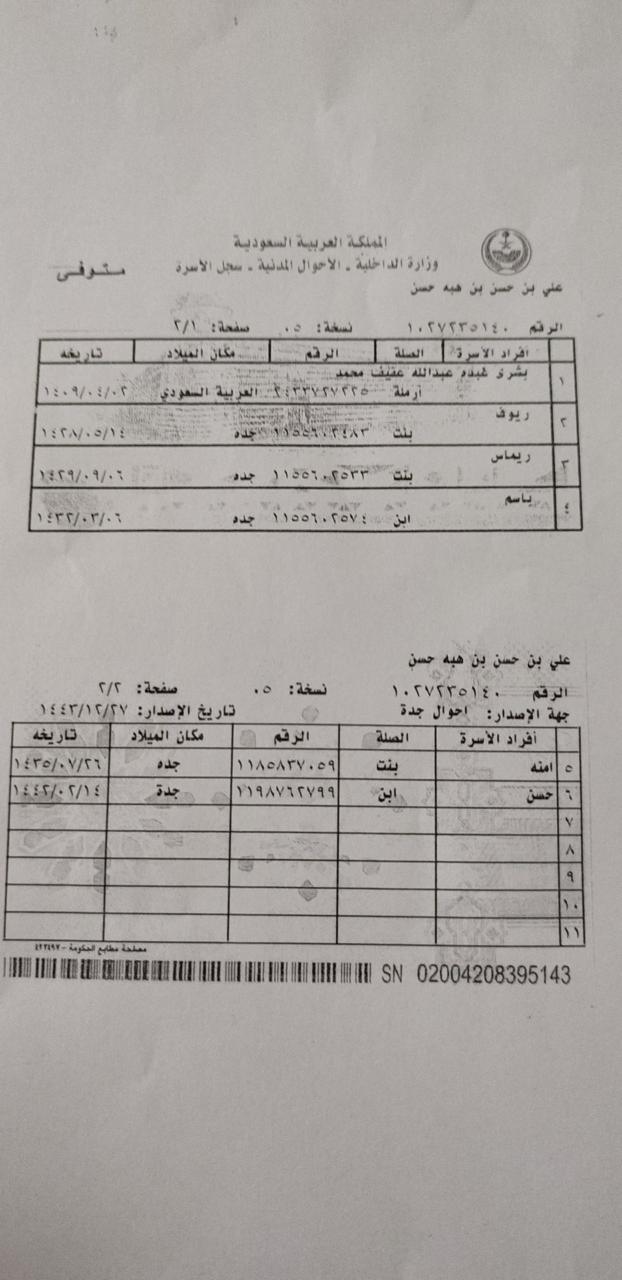 المملكة العربية السعودية
وزارة الداخلية - الأحوال المدنية - سجل الأسرة
متوفى
علي بن حسن بن هبه حسن
الرقم ١٠٢٧٢٣٥١٤٠ نسخة: ٠٥ صفحة: ٢/١
أفراد الأسرة الصلة الرقم مكان الميلاد تاريخه
١ بشرى عبده عبدالله عفيف محمد
أرملة ٢٤٣٣٧٢٧٢٢٥ العربية السعودي ١٤٠٩/٠٤/٠٢
٢ ريوف
بنت ١١٥٥٦٠٢٤٨٣ جده ١٤٢٨/٠٥/١٤
٣ ريماس
بنت ١١٥٥٦٠٢٥٣٣ جده ١٤٢٩/٠٩/٠٦
٤ ياسم
ابن ١١٥٥٦٠٢٥٧٤ جده ١٤٣٢/٠٣/٠٦
علي بن حسن بن هبه حسن
الرقم ١٠٢٧٢٣٥١٤٠ نسخة: ٠٥ صفحة: ٢/٢
جهة الإصدار: احوال جدة تاريخ الإصدار: ١٤٤٣/١٢/٢٧
أفراد الأسرة الصلة الرقم مكان الميلاد تاريخه
٥ امنه بنت ١١٨٥٨٣٧٠٥٩ جده ١٤٣٥/٠٧/٢٦
٦ حسن ابن ١١٩٨٧٦٢٧٩٩ جدة ١٤٤٢/٠٢/١٤
٧
٨
٩
١٠
١١
مصلحة مطابع الحكومة - ٤٢٢٤٩٧
SN 02004208395143